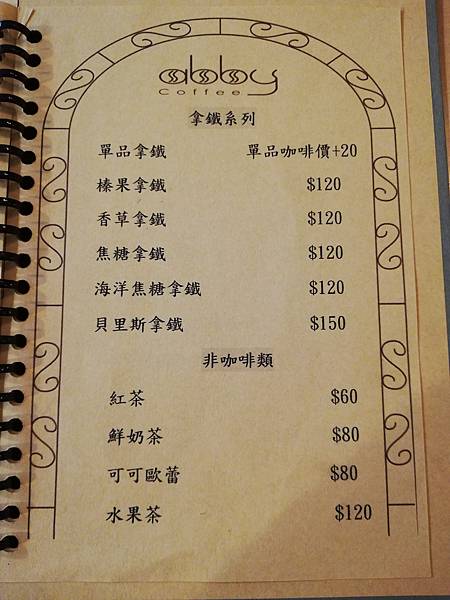 abby
Coffee
拿鐵系列
單品拿鐵 單品咖啡價+20
榛果拿鐵 $120
香草拿鐵 $120
焦糖拿鐵 $120
海洋焦糖拿鐵 $120
貝里斯拿鐵 $150
非咖啡類
紅茶 $60
鮮奶茶 $80
可可歐蕾 $80
水果茶 $120